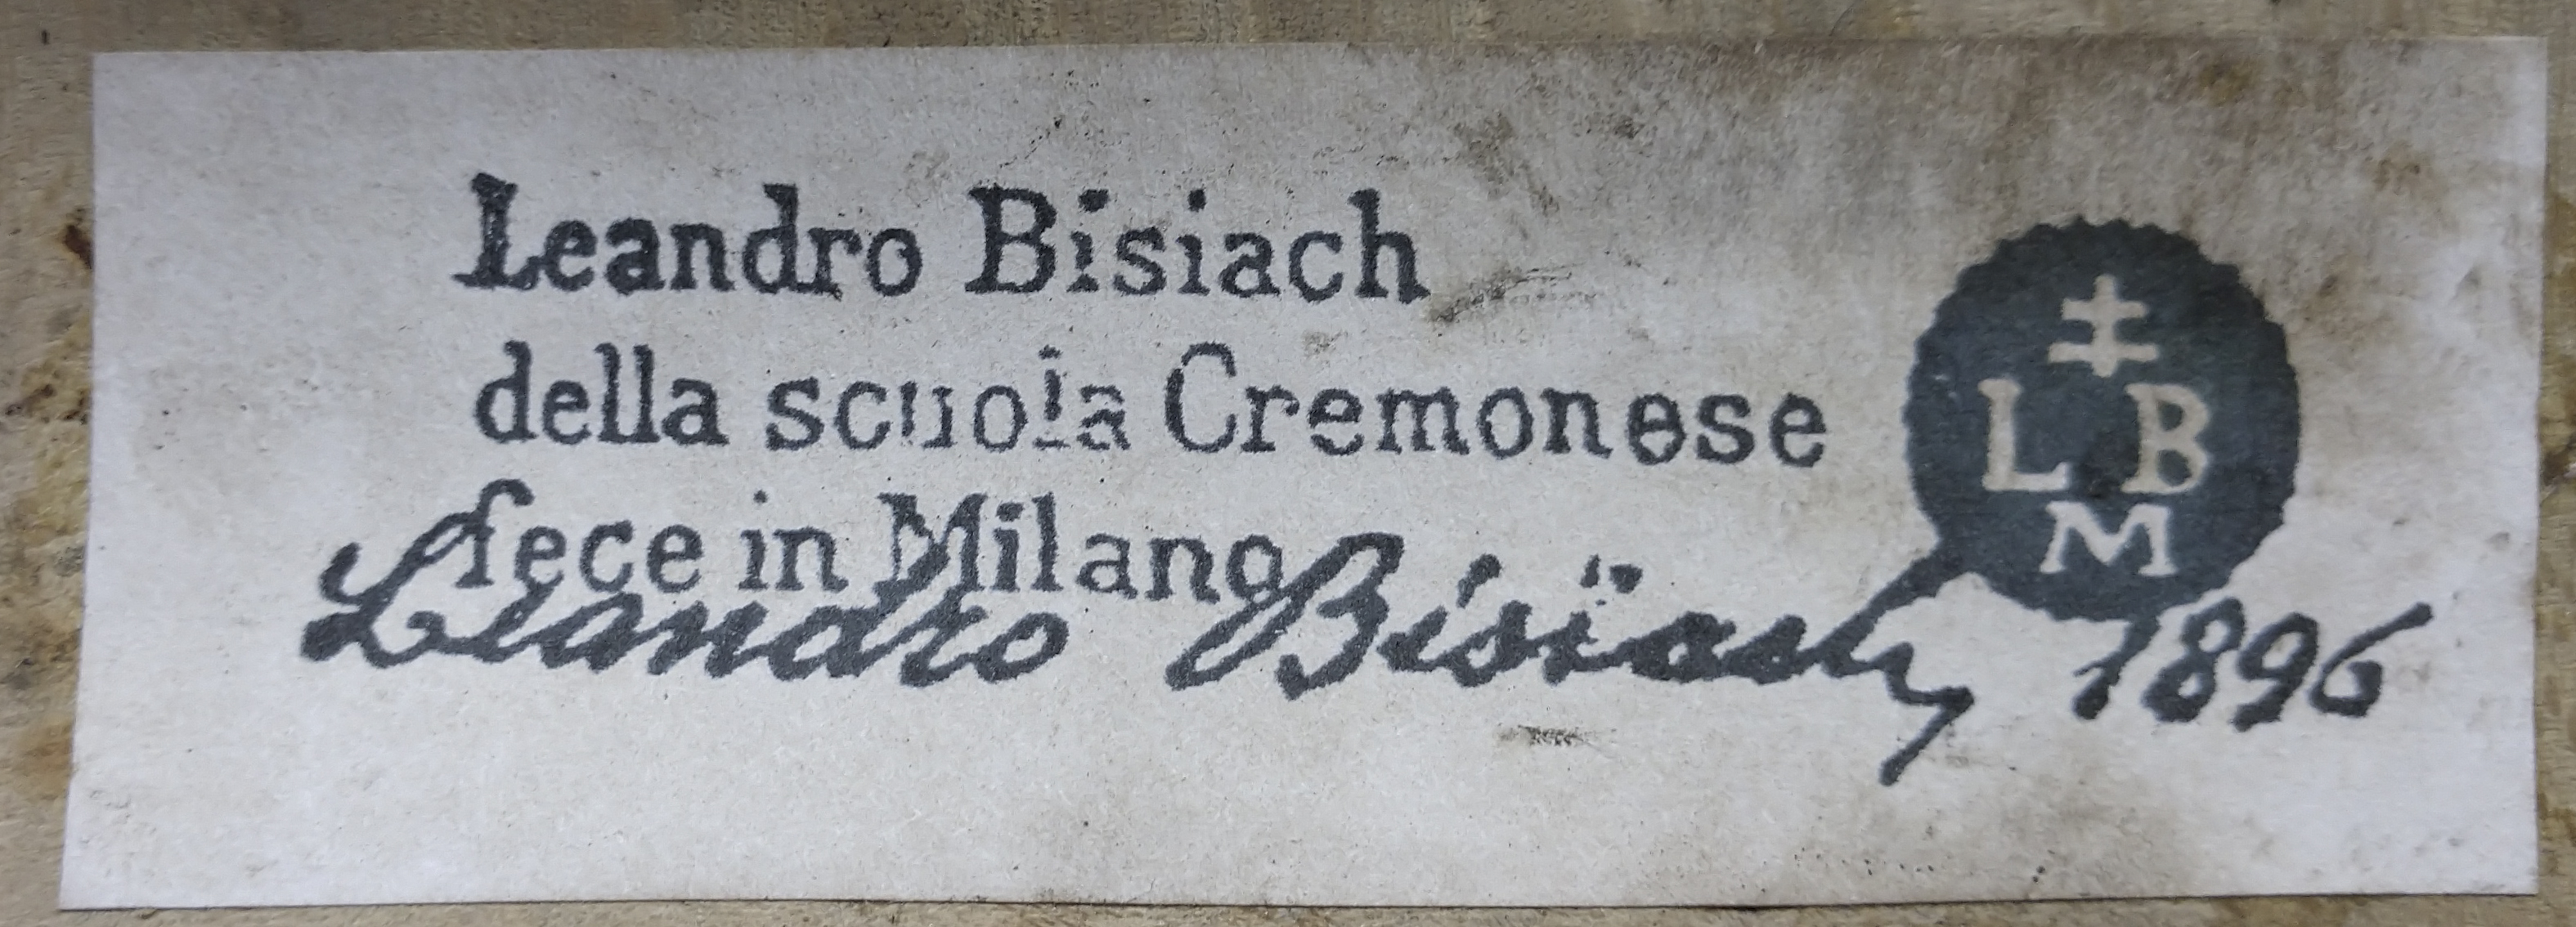 Leandro Bisiach
della scuola Cremonese
fece in Milano
L B
M
Leandro Bisiach 1896